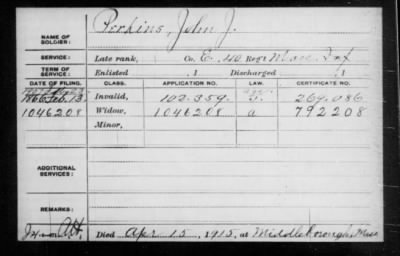 NAME OF SOLDIER: Perkins, John J.
SERVICE: Late rank, Co. E, 40 Reg't Mass Inf
TERM OF SERVICE: Enlisted , 1 Discharged , 1
DATE OF FILING. CLASS. APPLICATION NO. LAW. CERTIFICATE NO.
1866 Feb. 13 Invalid, 102.359 269.086
1046208 Widow, 1046208 a 792208
Minor,
ADDITIONAL SERVICES:
REMARKS:
Died Apr 15, 1915, at Middleborough Mass